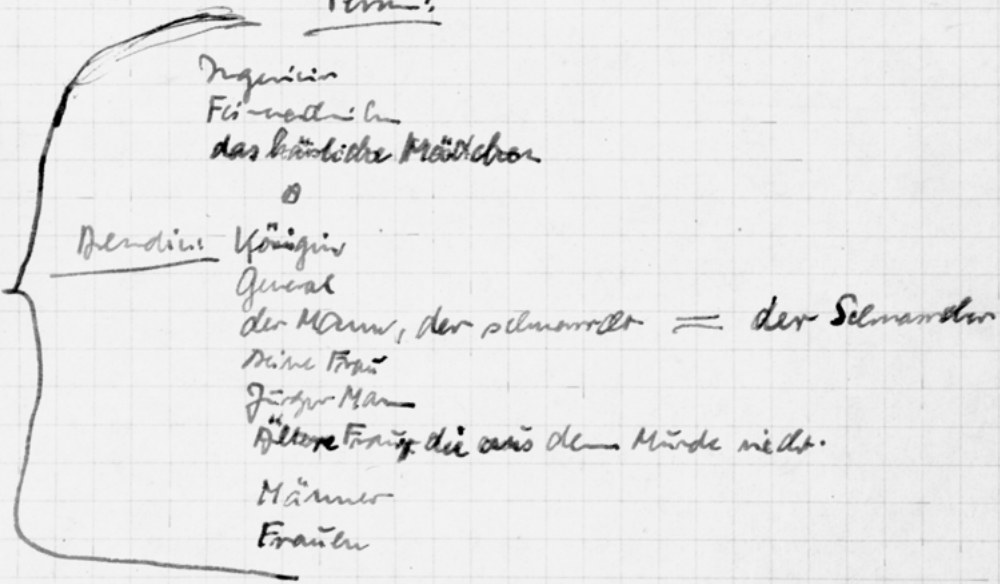 Person:
Ingenieur
das hässliche Mädchen
Königin
General
der Mann, der schnarcht = der Schnarcher
seine Frau
Junger Mann
Ältere Frau, die aus dem Munde riecht.
Männer
Frauen